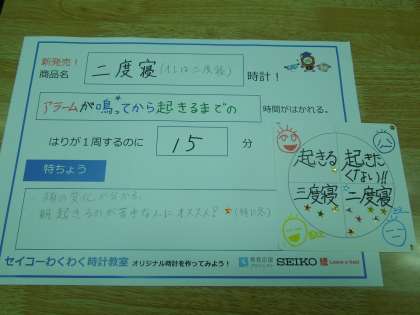 新発売!
商品名 二度寝 時計!
アラームが鳴ってから起きるまでの 時間がはかれる。
はりが1周するのに 15 分
特ちょう
朝起きるのが苦手な人にオススメ!
起きる
起きたくない!!
三度寝
二度寝
セイコーわくわく時計教室 オリジナル時計を作ってみよう!
SEIKO